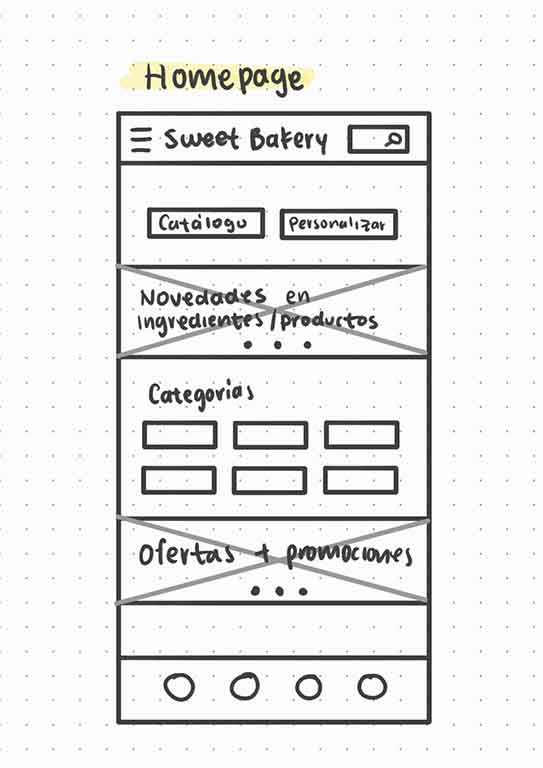 Homepage
Sweet Bakery
Catálogo
Personalizar
Novedades en
ingredientes/productos
Categorias
Ofertas + promociones